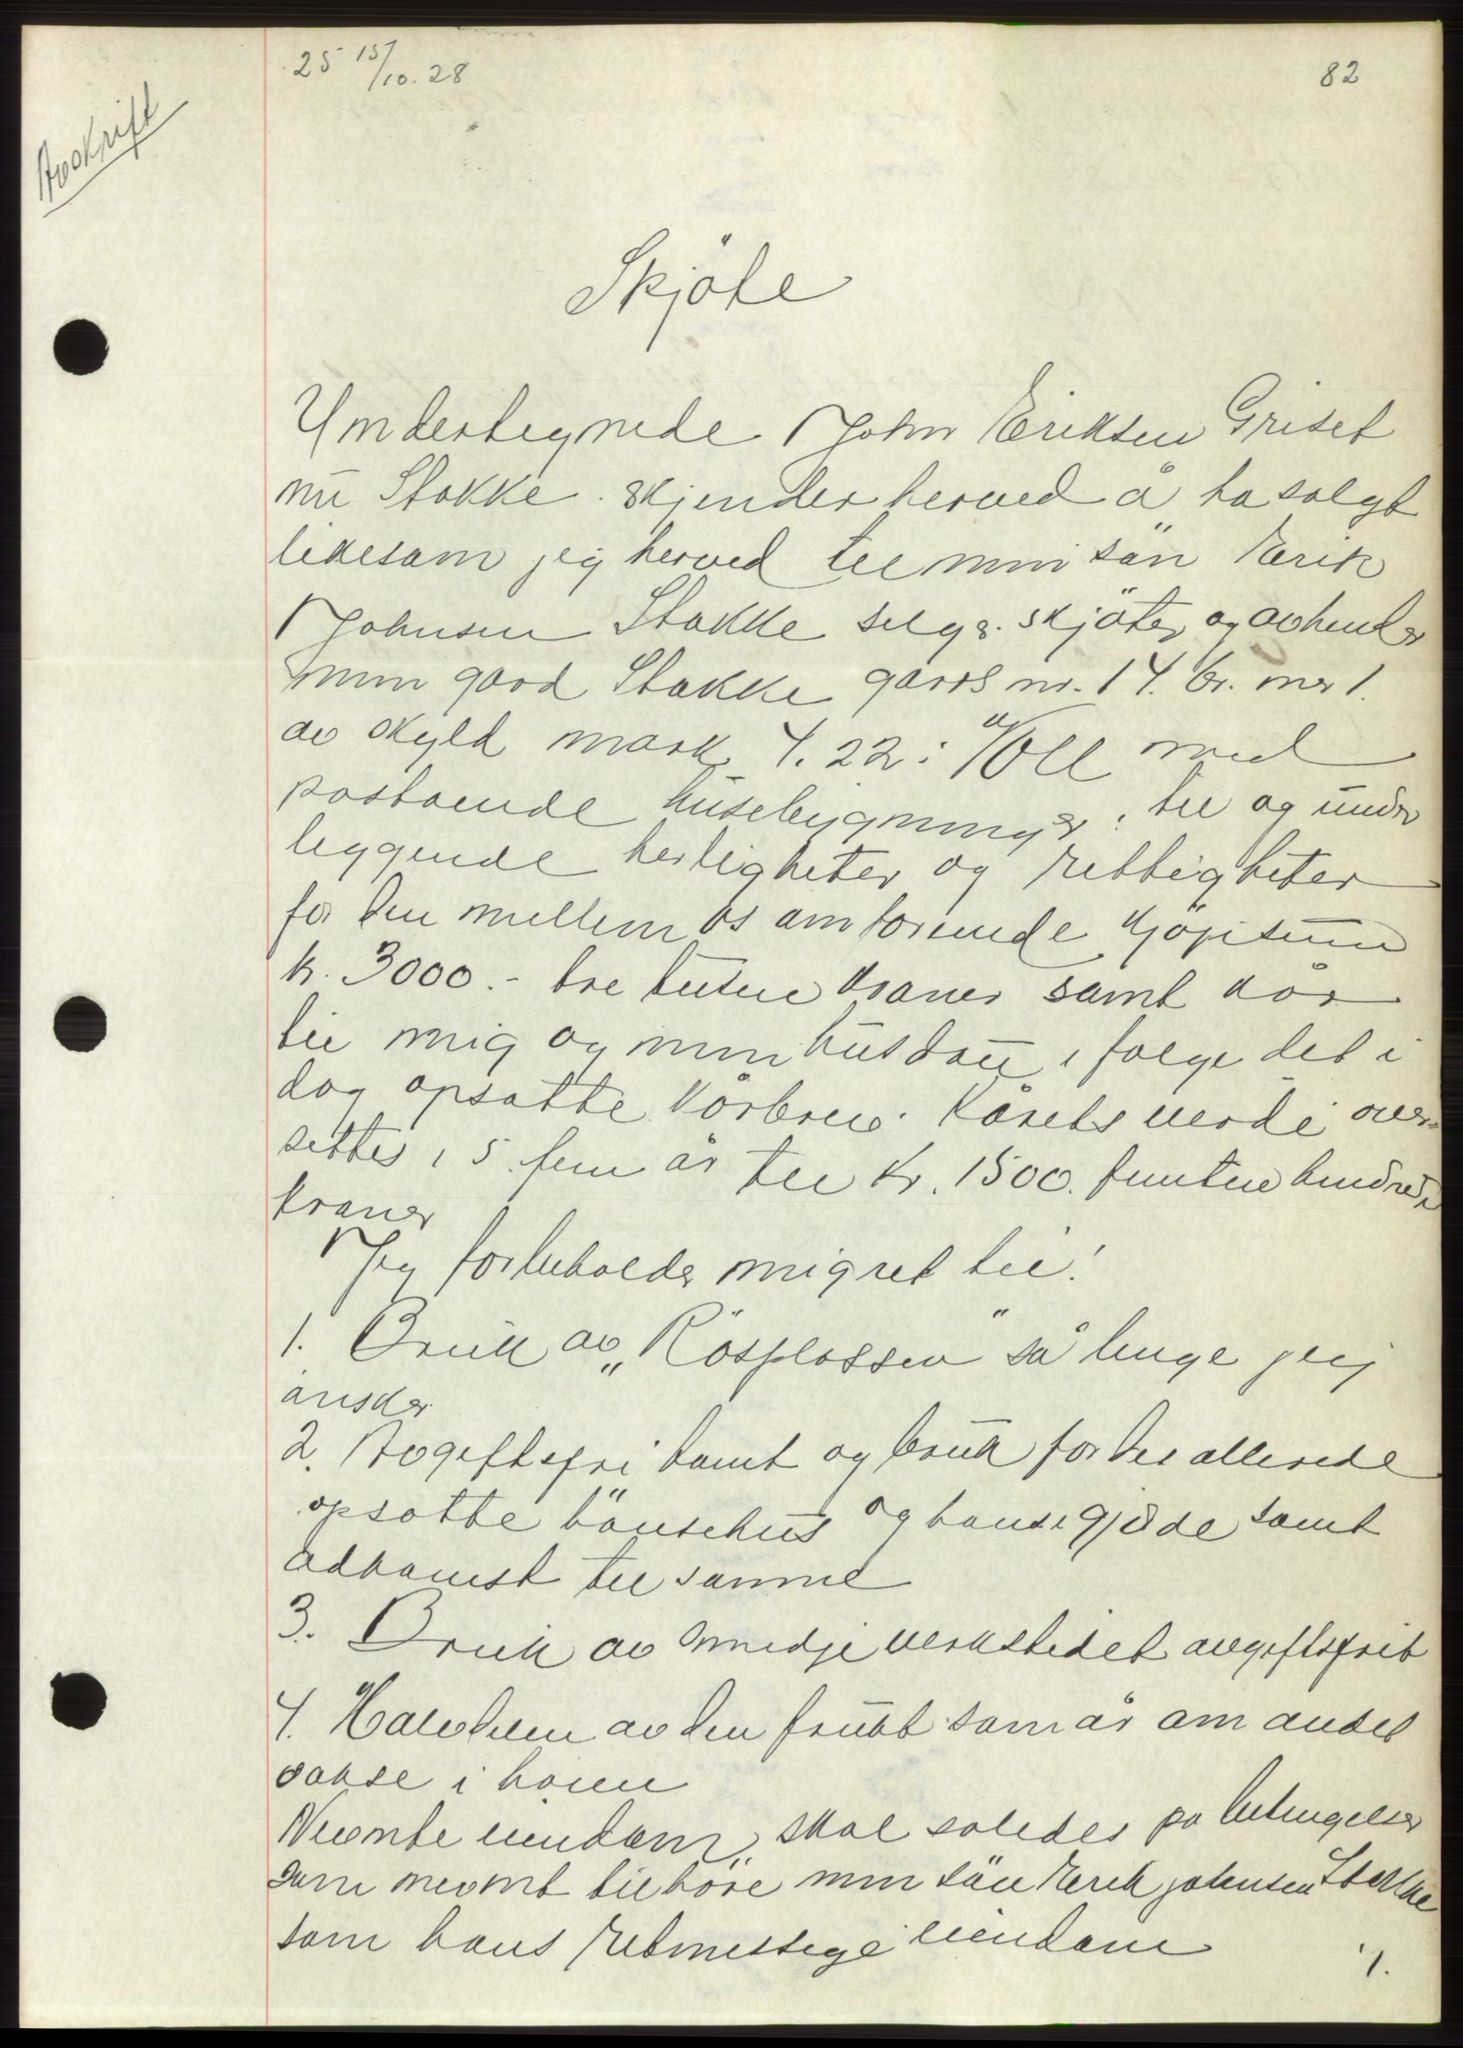 25 15/10.28
82
Avskrift
Skjöte
Undertegnede John Eriksen Griset
nu Stokke skjender herved å ha solgt
likesom jeg herved til min sön Erik
Johnsen Stokke selger skjöter og avhender
min gård Stokke gards nr. 14. br. nr 1.
av skyld mark 4.22 i Voll med
påstående husebygninger, til og under
liggende herligheter og rettigheter
for den mellem os omforenede kjöpesum
kr. 3000.- tre tusen kroner samt kår
til mig og min hustru i følge det i
dag opsatte kårbrev. Kårets verdi over-
settes i 5 fem år til kr. 1500. femten hundrede
kroner
Jeg forbeholder mig ret til:
1. Bruk av „Rösplassen" så lenge jeg
ønsker
2. Avgiftsfri tomt og bruk for det allerede
opsatte hönsehus og hönsegjerde samt
adkomst til samme
3. Bruk av smedje verkstedet avgiftsfrit
4. Halvdelen av den frukt som år om andet
vokse i haven
Nevnte eiendom skal således på betingelser
som nevnt tilhöre min sön Erik Johnsen Stokke
som hans retmessige eiendom
./.